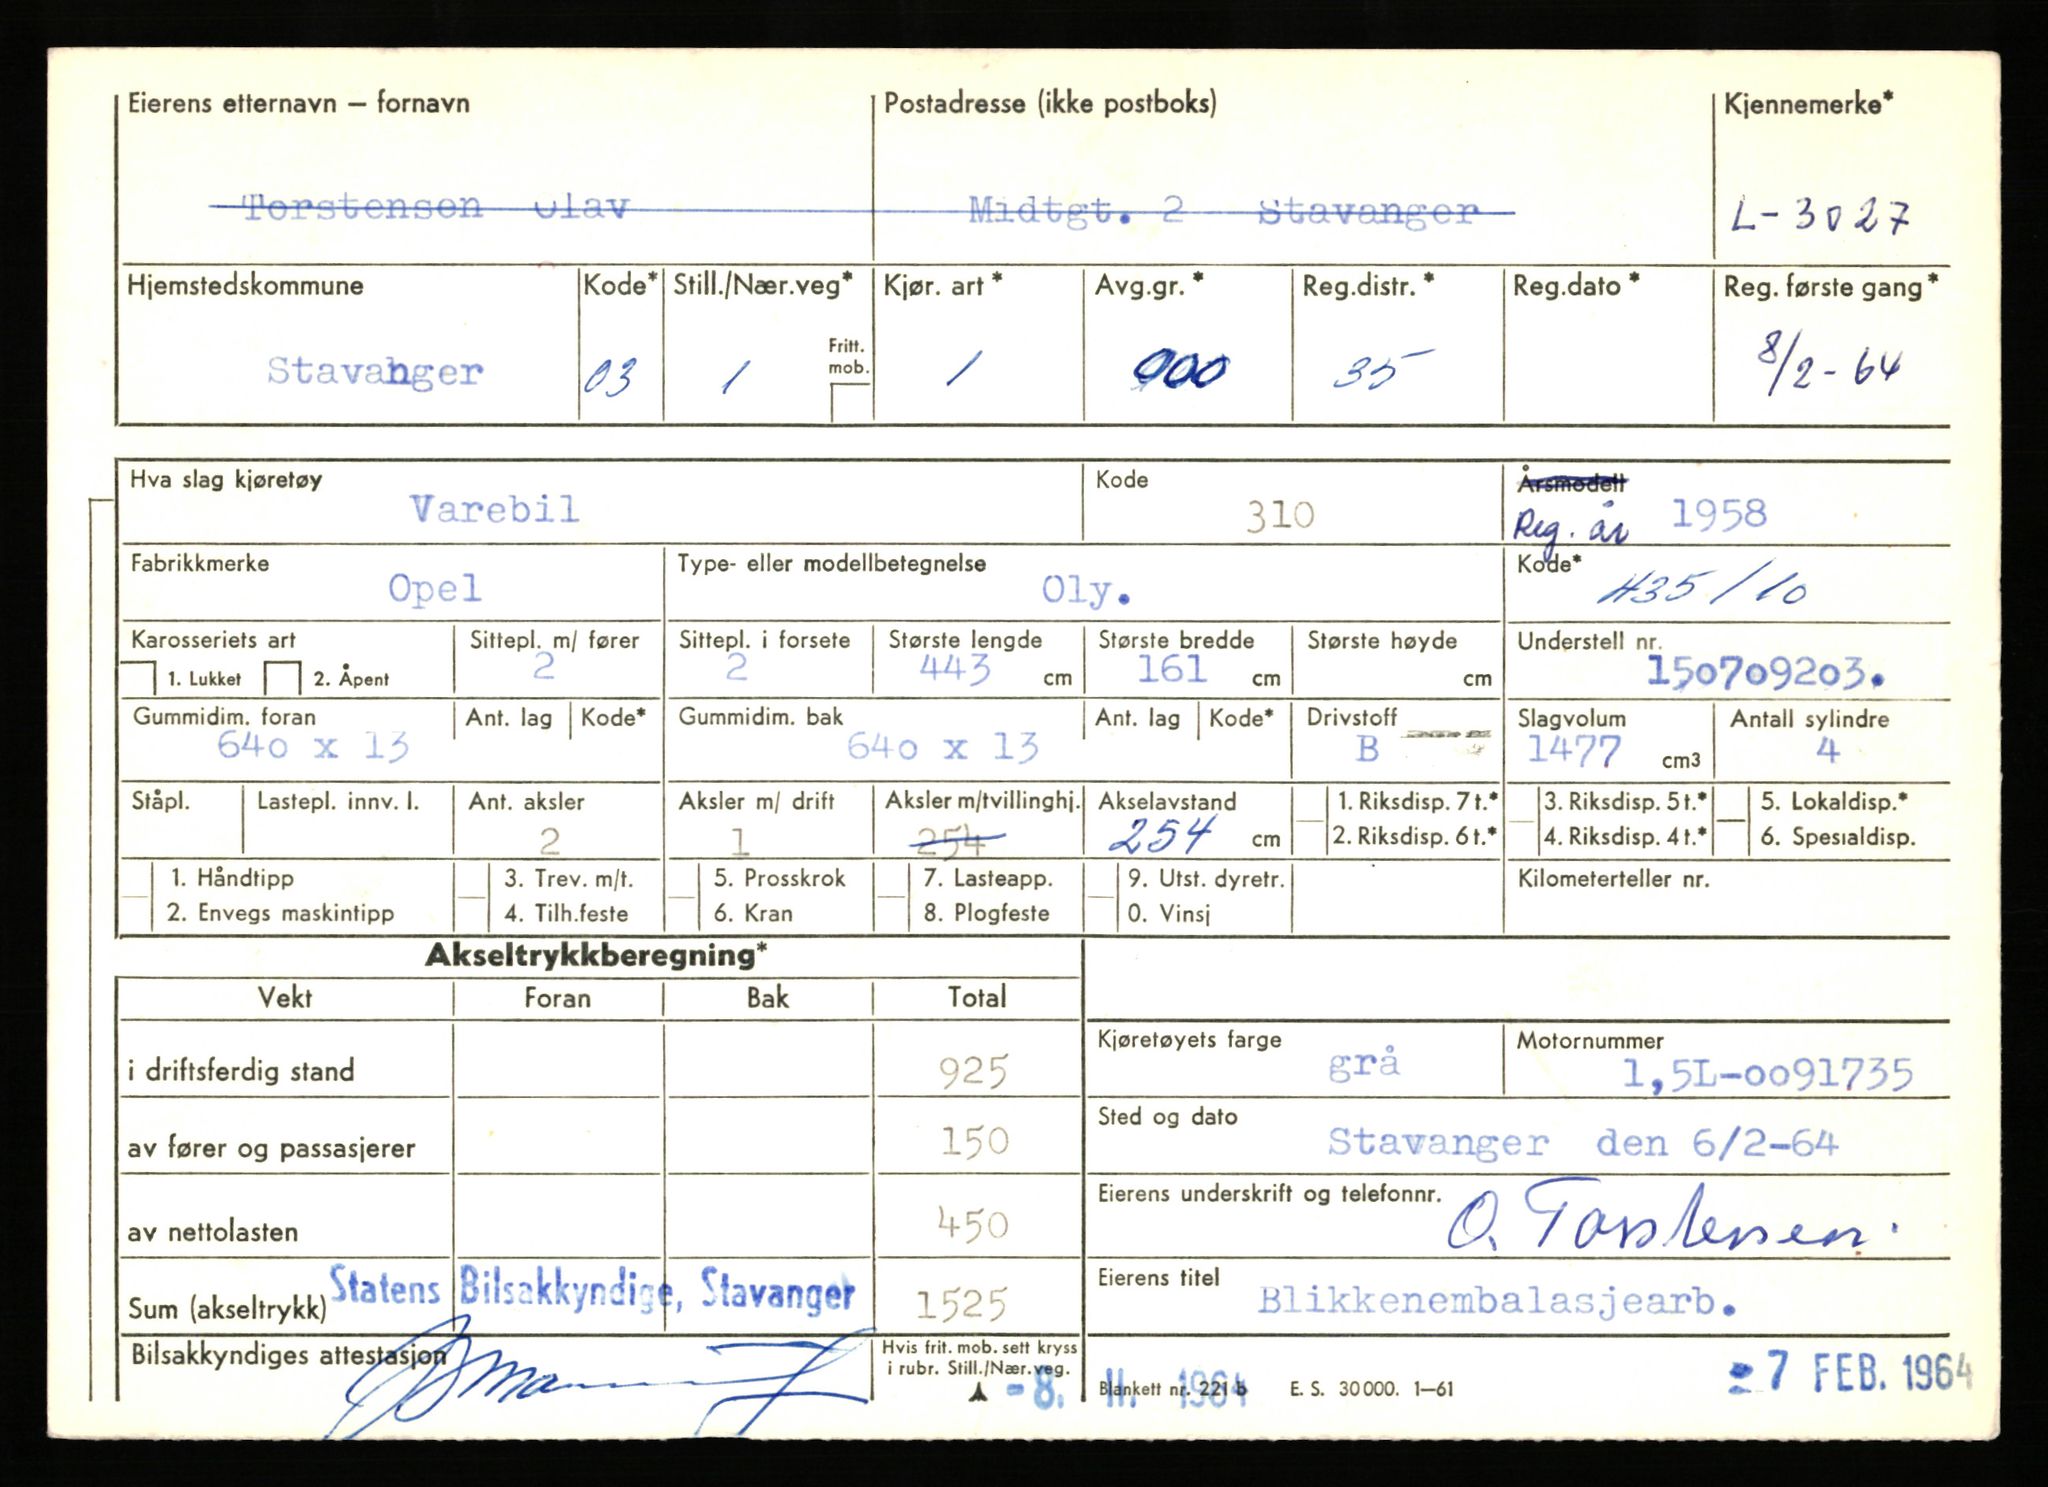 Eierens etternavn — fornavn Postadresse (ikke postboks) Kjennemerke*
Torstensen Olav Midtgt. 2 Stavanger L-3027
Hjemstedskommune Kode* Still./Nær.veg* Kjør. art* Avg.gr.* Reg.distr.* Reg.dato* Reg. første gang*
Fritt. mob.
Stavanger 03 1 1 900 35 8/2-64
Hva slag kjøretøy Kode Årsmodell
Varebil 310 Reg. år 1958
Fabrikkmerke Type- eller modellbetegnelse Kode*
Opel Oly. 435/10
Karosseriets art Sittepl. m/ fører Sittepl. i forsete Største lengde Største bredde Største høyde Understell nr.
1. Lukket 2. Åpent 2 2 443 cm 161 cm cm 150709203.
Gummidim. foran Ant. lag Kode* Gummidim. bak Ant. lag Kode* Drivstoff Slagvolum Antall sylindre
640 x 13 640 x 13 B 1477 cm3 4
Ståpl. Lastepl. innv. l. Ant. aksler Aksler m/ drift Aksler m/tvillinghj. Akselavstand 1. Riksdisp. 7 t.* 3. Riksdisp. 5 t.* 5. Lokaldisp.*
2 1 254 254 cm 2. Riksdisp. 6 t.* 4. Riksdisp. 4 t.* 6. Spesialdisp.
1. Håndtipp 3. Trev. m/t. 5. Prosskrok 7. Lasteapp. 9. Utst. dyretr. Kilometerteller nr.
2. Envegs maskintipp 4. Tilh.feste 6. Kran 8. Plogfeste 0. Vinsj
Akseltrykkberegning*
Vekt Foran Bak Total
i driftsferdig stand 925
Kjøretøyets farge Motornummer
grå 1,5L-0091735
av fører og passasjerer 150
Sted og dato
Stavanger den 6/2-64
av nettolasten 450
Eierens underskrift og telefonnr.
O. Torstensen.
Sum (akseltrykk) Statens Bilsakkyndige, Stavanger 1525
Eierens titel
Blikkenembalasjearb.
Bilsakkyndiges attestasjon Hvis frit. mob. sett kryss
i rubr. Still./Nær.veg.
-8. II. 1964 Blankett nr. 221 b E. S. 30 000. 1—61 -7 FEB. 1964